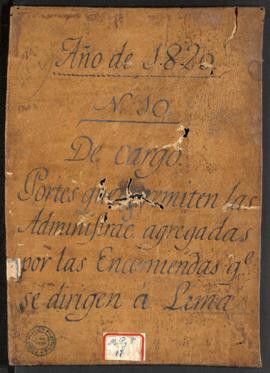 Año de 1820.
N. 10.
De cargo.
Portes que remiten las
Administrac. agregadas
por las Encomiendas qe.
se dirigen á Lima